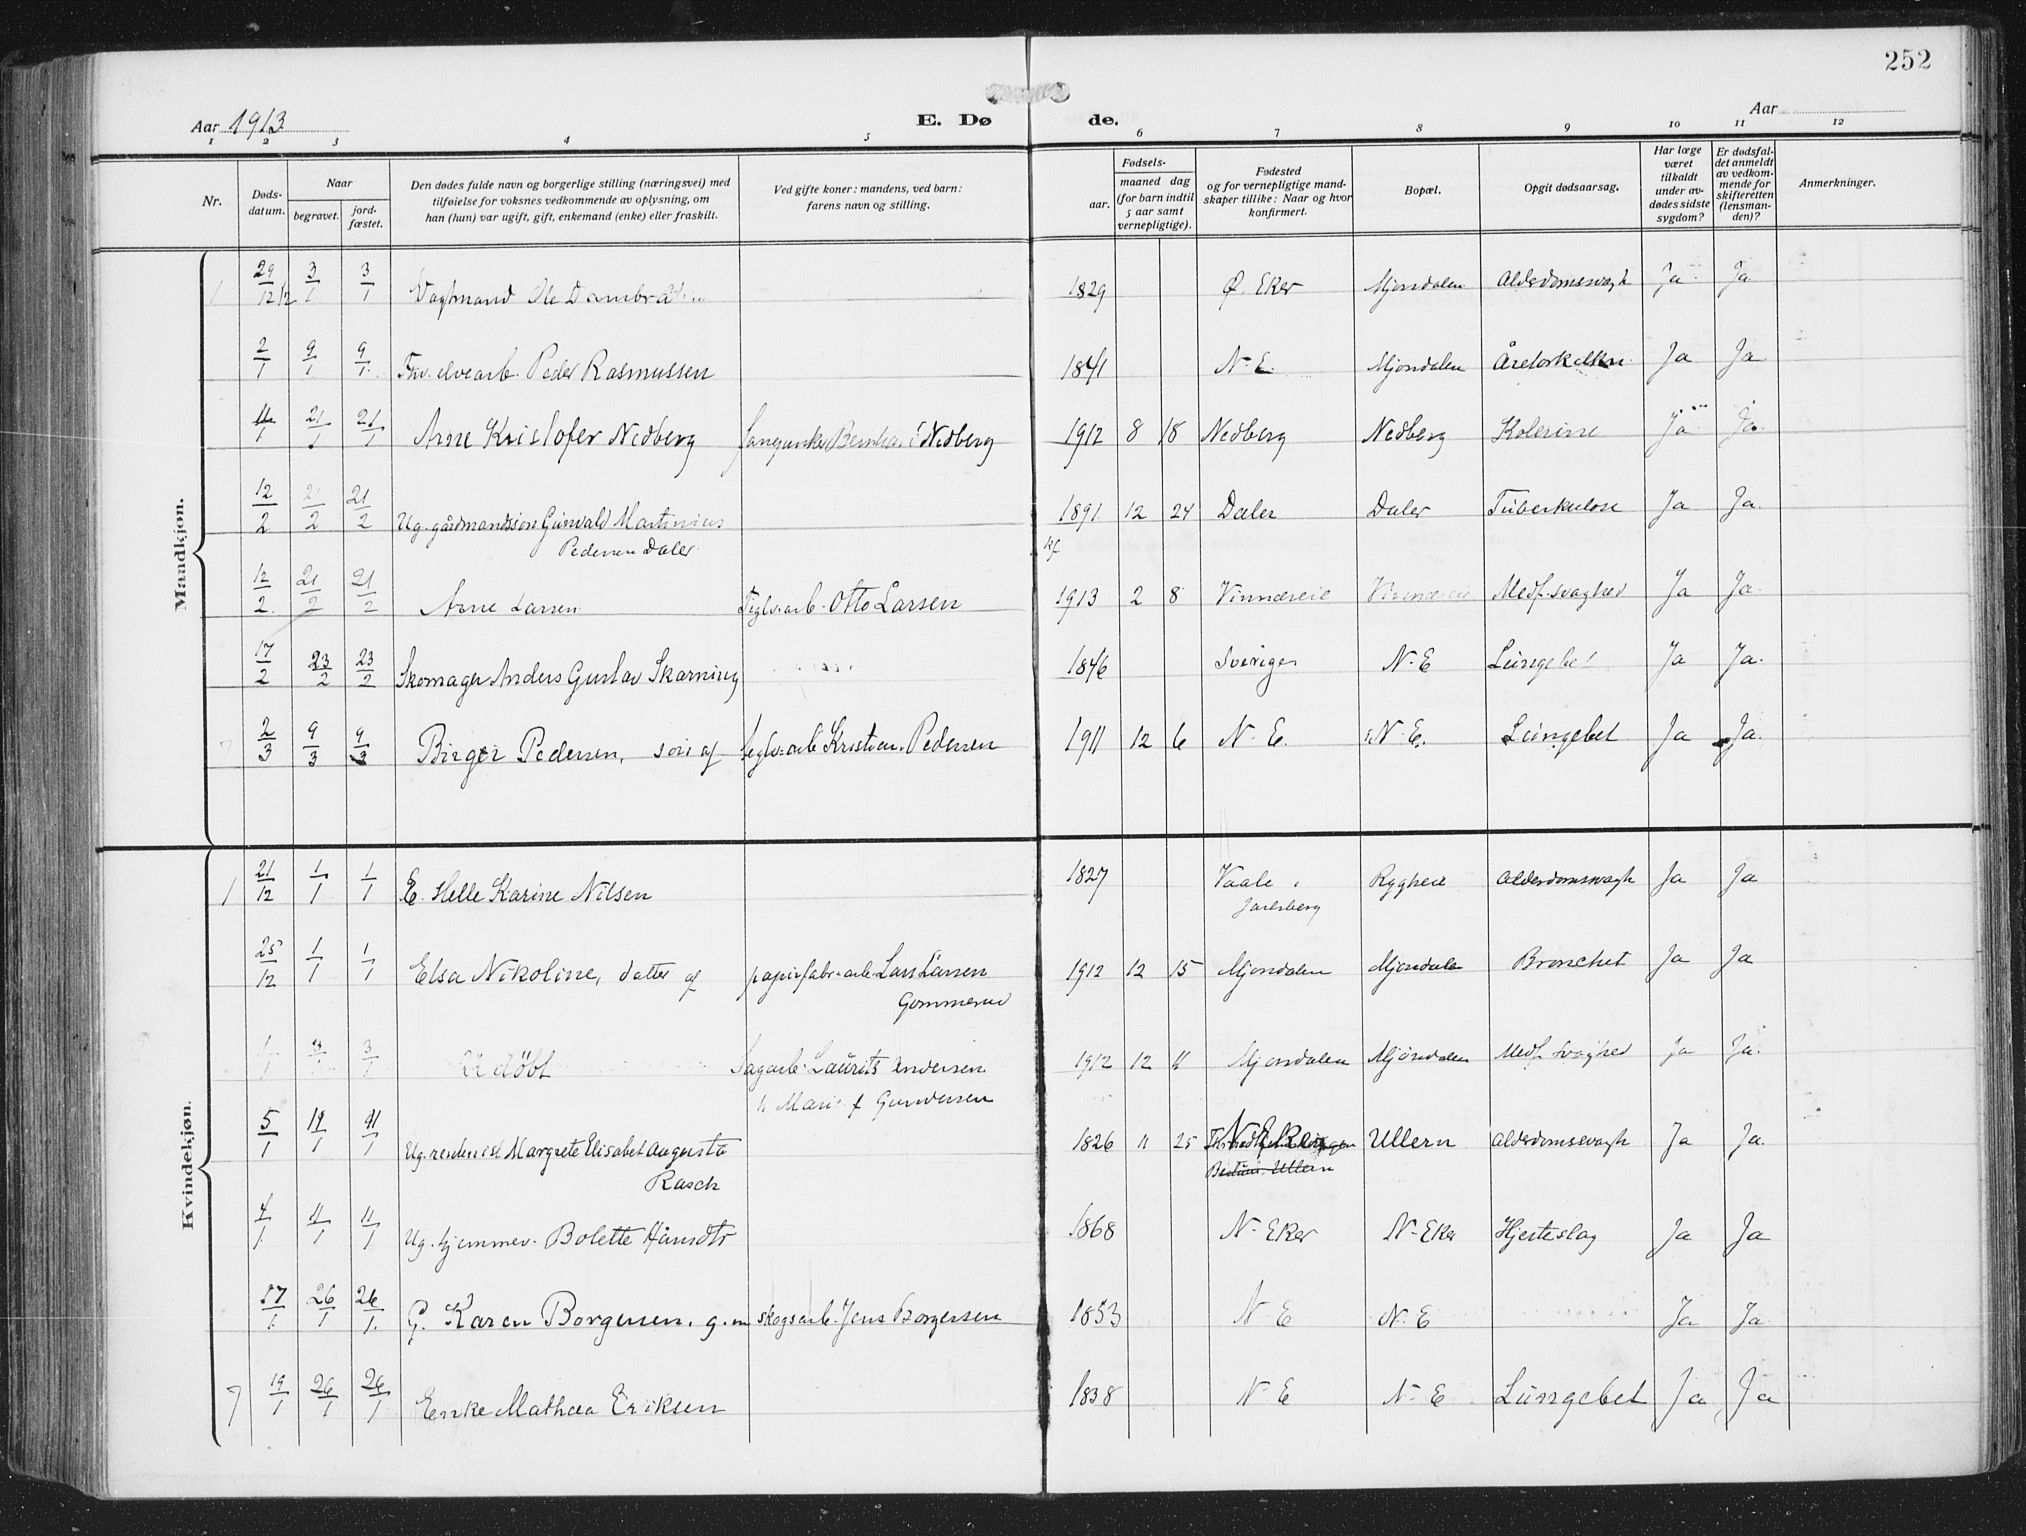 252
Aar 1913
E. Dø de.
Aar
1 2 3 4 5 6 7 8 9 10 11 12
Nr.
Døds-
datum.
Naar
begravet.
jord-
fæstet.
Den dødes fulde navn og borgerlige stilling (næringsvei) med
tilføielse for voksnes vedkommende av oplysning, om
han (hun) var ugift, gift, enkemand (enke) eller fraskilt.
Ved gifte koner: mandens, ved barn:
farens navn og stilling.
Fødsels-
aar.
maaned dag
(for barn indtil
5 aar samt
vernepligtige).
Fødested
og for vernepligtige mand-
skaper tillike: Naar og hvor
konfirmert.
Bopæl.
Opgit dødsaarsag.
Har læge
været
tilkaldt
under av-
dødes sidste
sygdom?
Er dødsfal-
det anmeldt
av vedkom-
mende for
skifteretten
(lensman-
den)?
Anmerkninger.
Mandkjøn.
1 29/12 12 3/1 3/1 Vagtmand Ole 1829 Ø. Eker Mjøndalen Alderdomssvagh Ja Ja
2/1 9/1 9/1 Fhv. elvearb. Peder Rasmussen 1841 N-E. Mjøndalen Ja Ja
21/1 21/1 Arne Kristofer Nedberg Nedberg 1912 8 18 Nedberg Nedberg Kolerine Ja Ja
12/2 21/2 21/2 Ug. gårdmandssøn Gunvald Martinius 1891 12 24 Daler Daler Tuberkulose Ja Ja
Pedersen Daler
kf.
12/2 21/2 21/2 Arne Larsen Teglv-arb. Otto Larsen 1913 2 8 Vinnæseie Vinnæseie Medf. svaghed Ja Ja
17/2 23/2 23/2 Skomager Anders Gustav Skarning 1846 Sverige N-E Ja Ja
7 2/3 9/3 9/3 Birger Pedersen, søn af teglv-arb Kristian Pedersen 1911 12 6 N-E. N-E. Lungebet Ja Ja
Kvindekjøn.
1 21/12 1/1 1/1 E. Helle Karine Nilsen 1827 Vaale i Rygheie Alderdomssvagh Ja Ja
Jarlsberg
25/12 1/1 1/1 Elsa Nikoline, datter af papirfabr-arb Lars Larsen 1912 12 15 Mjøndalen Mjøndalen Bronchet Ja Ja
Gommerud
3/1 3/1 Udøbt Sagarb. Laurits Andersen 1912 12 11 Mjøndalen Mjøndalen Medf. svaghed Ja Ja
h. Marie f. Gundersen
5/1 11/1 11/1 Ug. Margrete Elisabet Augusta 1826 11 25 N. Eker Ullern Alderdomssvagh Ja Ja
Rasch Ullern
4/1 11/1 11/1 Ug. hjemmev. Bolette 1868 N-Eker N-Eker Hjerteslag Ja Ja
17/1 26/1 26/1 G. Karen Borgersen. g. m skogsarb. Jens Borgersen 1853 N-E N-E Ja Ja
7 19/1 26/1 26/1 Enke Mathea Eriksen 1838 N-E N-E Lungebet Ja Ja